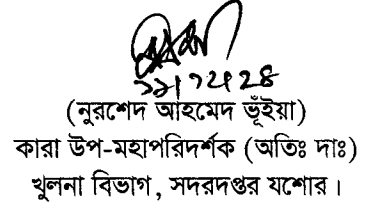 (নুরশেদ আহমেদ ভূঁইয়া)
কারা উপ-মহাপরিদর্শক (অতিঃ দাঃ)
খুলনা বিভাগ, সদরদপ্তর যশোর।